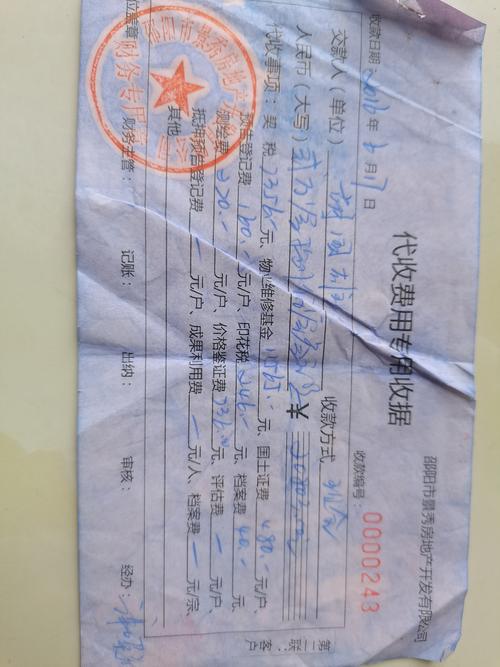 邵阳市景秀房地产开发有限公司
代收费用专用收据
收款编号：0000243
收款日期：年 月17日
交款人（单位） 收款方式 现金
人民币（大写） ￥20803.00
代收事项：契税7356.元、物业维修基金 元、国土证费480.元
预告登记费160.元/户、印花税246.元、档案费40.元
测绘费220.元/户、价格鉴证费736.00元、评估费—元/户
抵押预告登记费—元/户、成果利用费—元/人、档案费—元/宗、
其他
单位盖章： 财务主管： 记账： 出纳： 审核： 经办：
第二联：客户
邵阳市景秀房地产开发有限公司
财务专用章